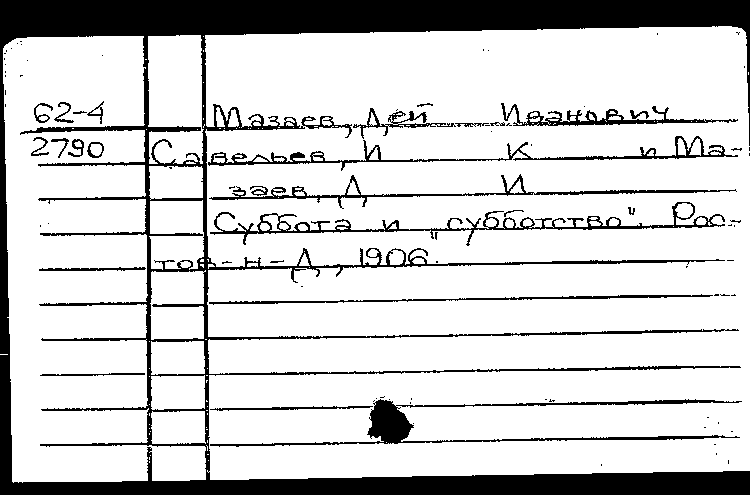 62-4 Мазаев, Дей Иванович
2790 Савельев, И К и Ма-
заев, Д И
Суббота и "субботство". Рос-
тов-н-Д, 1906.